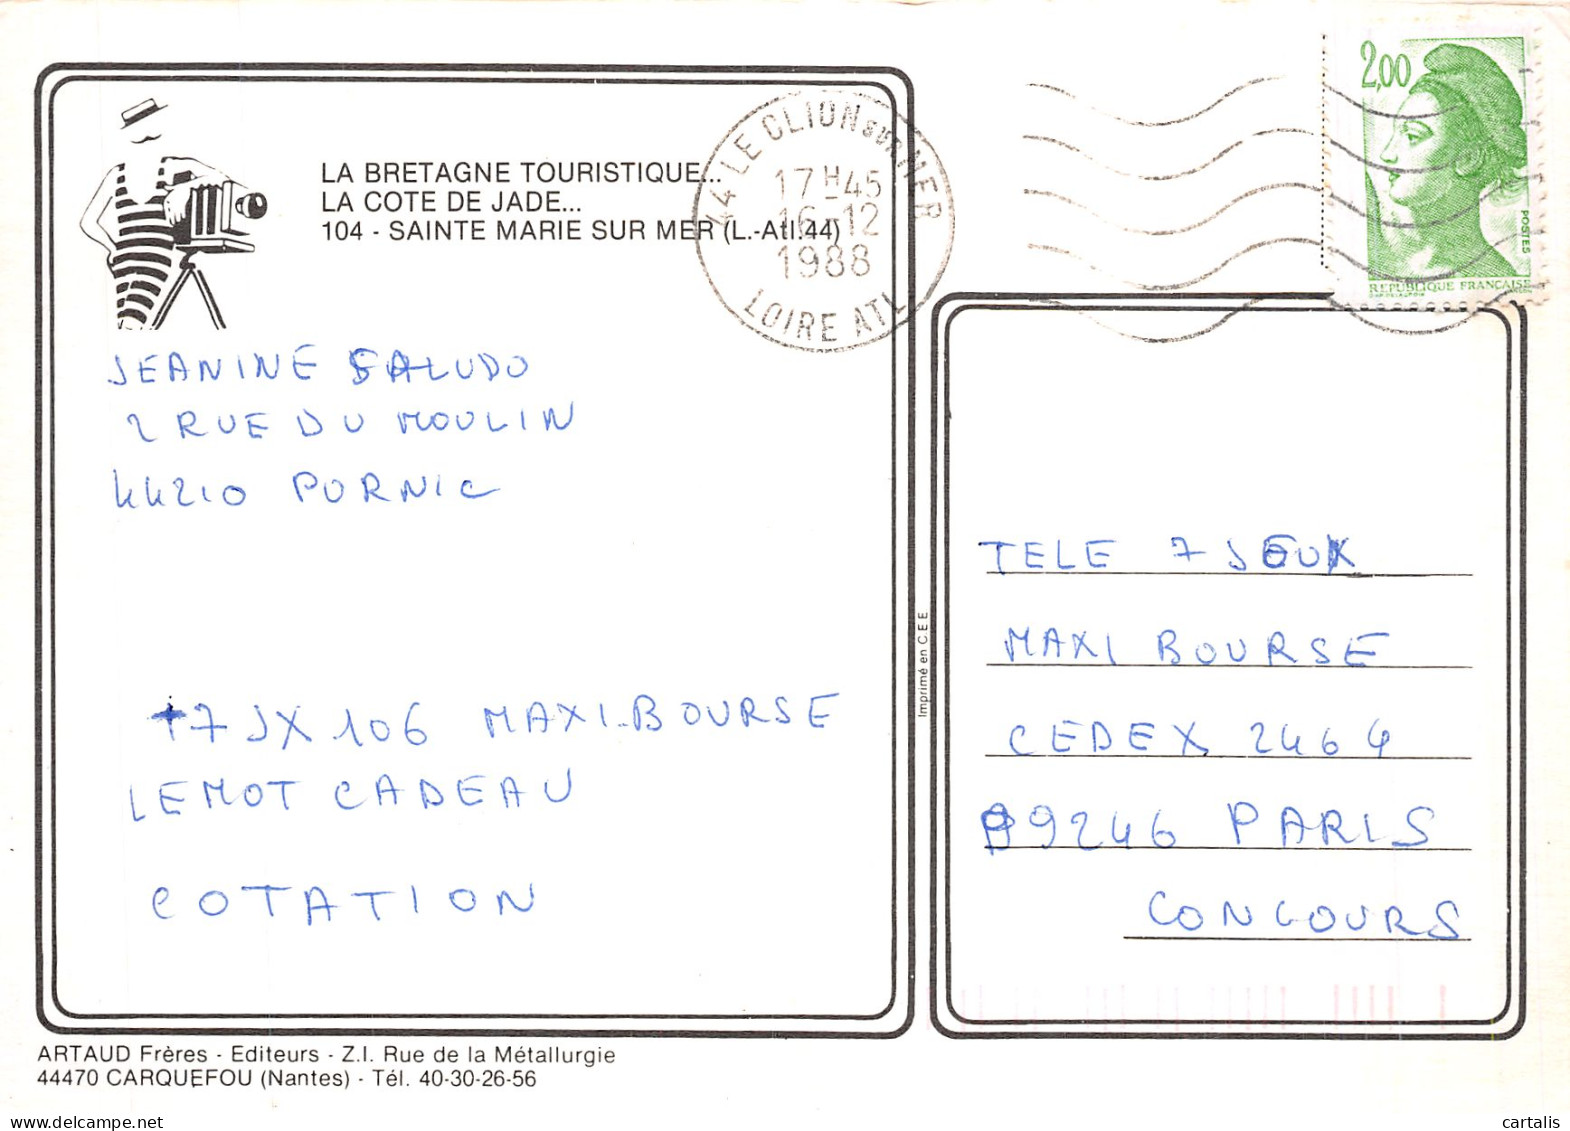 LA BRETAGNE TOURISTIQUE...
LA COTE DE JADE...
104 - SAINTE MARIE SUR MER (L.-Atl.44)
44 LE CLION SUR MER
17H45
16-12
1988
LOIRE ATL
2,00
POSTES
REPUBLIQUE FRANCAISE
JEANINE SALUDO
2 RUE DU MOULIN
44210 PORNIC
7 JX 106 MAXI-BOURSE
LE MOT CADEAU
COTATION
Imprimé en C.E.E
TELE 7 JEUX
MAXI BOURSE
CEDEX 2464
99246 PARIS
CONCOURS
ARTAUD Frères - Editeurs - Z.I. Rue de la Métallurgie
44470 CARQUEFOU (Nantes) - Tél. 40-30-26-56
cartalis